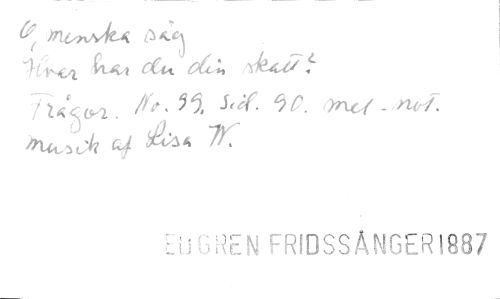 O, menska säg
Hvar har du din skatt?
Frågor. No. 99. Sid. 90. mel-not.
musik af Lisa W.
EUGREN FRIDSSÅNGER 1887